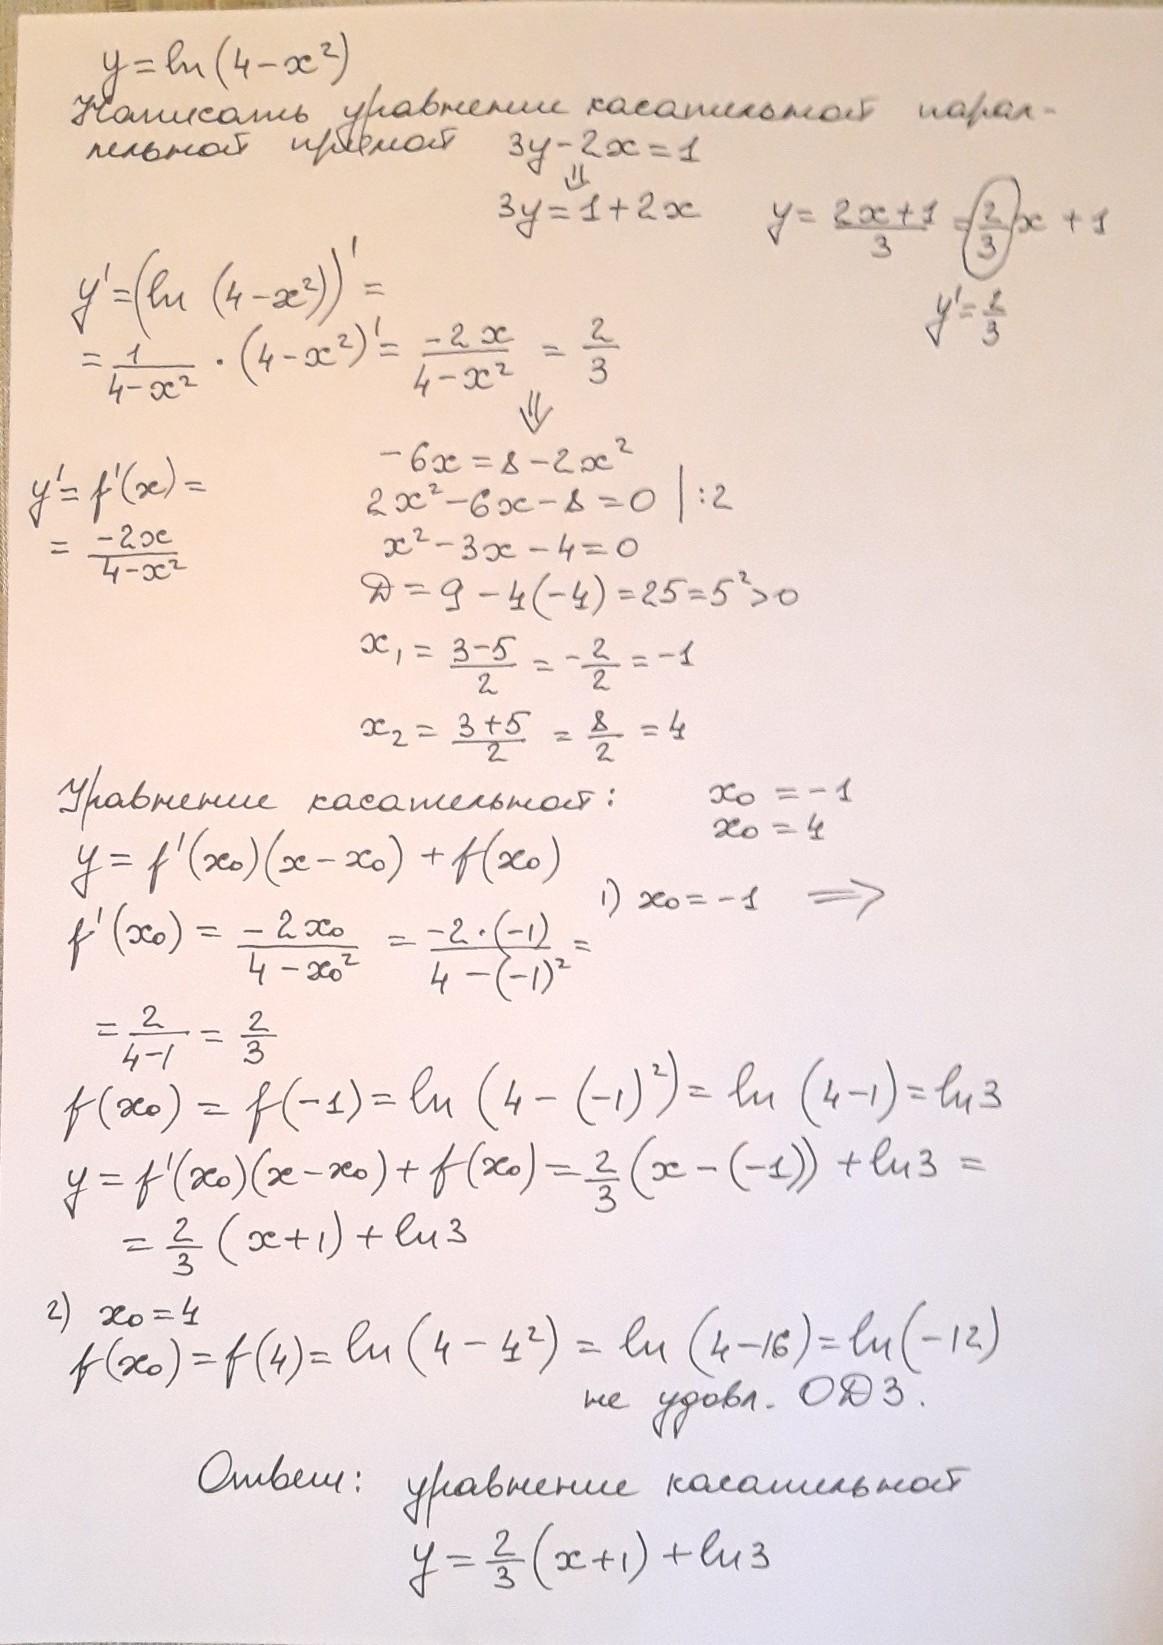 y = ln(4 − x²)
Написать уравнение касательной парал-
лельной прямой 3y − 2x = 1
⇓
3y = 1 + 2x y = (2x+1)/3 = (2/3)x + 1
y' = 2/3
y' = (ln (4 − x²))' =
= 1/(4−x²) · (4 − x²)' = −2x/(4−x²) = 2/3
⇓
−6x = 8 − 2x²
y' = f'(x) =
2x² − 6x − 8 = 0 | : 2
= −2x/(4−x²)
x² − 3x − 4 = 0
Д = 9 − 4(−4) = 25 = 5² > 0
x₁ = (3−5)/2 = −2/2 = −1
x₂ = (3+5)/2 = 8/2 = 4
Уравнение касательной: x₀ = −1
x₀ = 4
y = f'(x₀)(x − x₀) + f(x₀)
1) x₀ = −1 ⟹
f'(x₀) = −2x₀/(4 − x₀²) = −2·(−1)/(4 − (−1)²) =
= 2/(4−1) = 2/3
f(x₀) = f(−1) = ln (4 − (−1)²) = ln (4−1) = ln3
y = f'(x₀)(x − x₀) + f(x₀) = 2/3 (x − (−1)) + ln3 =
= 2/3 (x+1) + ln3
2) x₀ = 4
f(x₀) = f(4) = ln (4 − 4²) = ln (4−16) = ln(−12)
не удовл. ОДЗ.
Ответ: уравнение касательной
y = 2/3 (x+1) + ln3